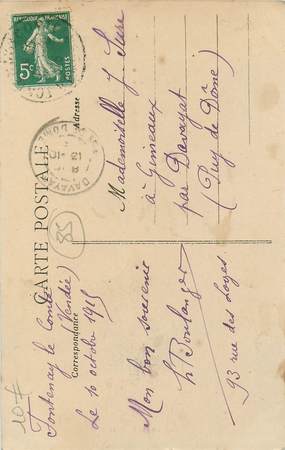 CARTE POSTALE
Correspondance
Adresse
Fontenay le Comte
(Vendée)
Le 10 octobre 1915
Mon bon souvenir
H Boulanger
93 rue des Loges
Mademoiselle J. Sure
à Gimeaux
par Davayat
(Puy de Dôme)
REPUBLIQUE FRANÇAISE
5c
POSTES
DAVAYAT
85
10F